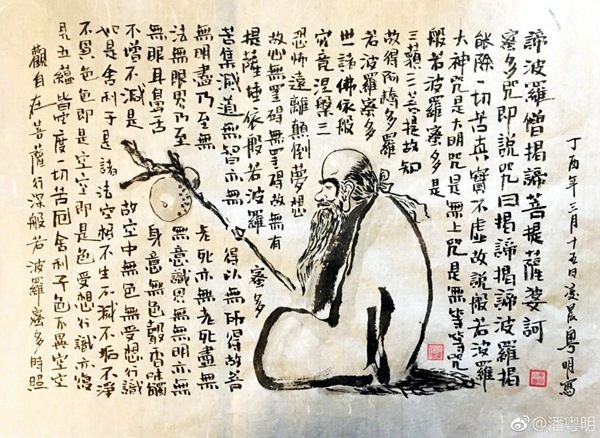 觀自在菩薩行深般若波羅蜜多時照
見五蘊皆空度一切苦厄舍利子色不異空空
不異色色即是空空即是色受想行識亦復
如是舍利子是諸法空相不生不滅不垢不淨
不增不減是 故空中無色無受想行識
無眼耳鼻舌 身意無色聲香味觸
法無眼界乃至 無意識界無無明亦無
無明盡乃至無 老死亦無老死盡無
苦集滅道無智亦無 得以無所得故菩
提薩埵依般若波羅 蜜多
故心無罣礙無罣礙故無有
恐怖遠離顛倒夢想
究竟涅槃三
世諸佛依般
若波羅蜜多
故得阿耨多羅
三藐三菩提故知
般若波羅蜜多是
大神咒是大明咒是無上咒是無等等咒
能除一切苦真實不虛故說般若波羅
蜜多咒即說咒曰揭諦揭諦波羅揭
諦波羅僧揭諦菩提薩婆訶
丁酉年三月十五日凌晨粵明寫
@潘粤明